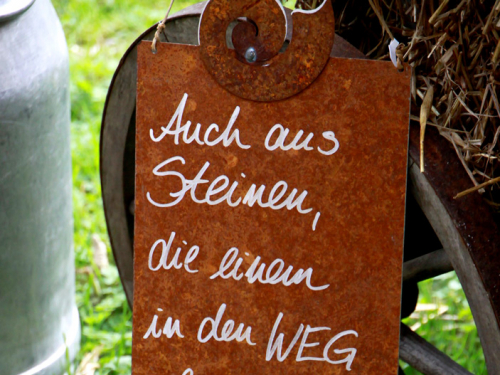 Auch aus
Steinen,
die einem
in den WEG